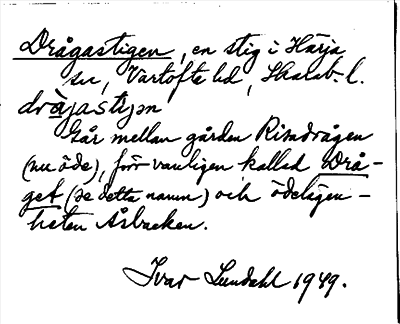 Drågastigen, en stig i Härja
sn, Vartofta hd, Skarab. l.
drå̀jastıjən
Går mellan gården Risadrågen
(nu öde), förr vanligen kallad Drå-
get (se detta namn) och ödelägen-
heten Åsbacken.
Ivar Lundahl 1949.